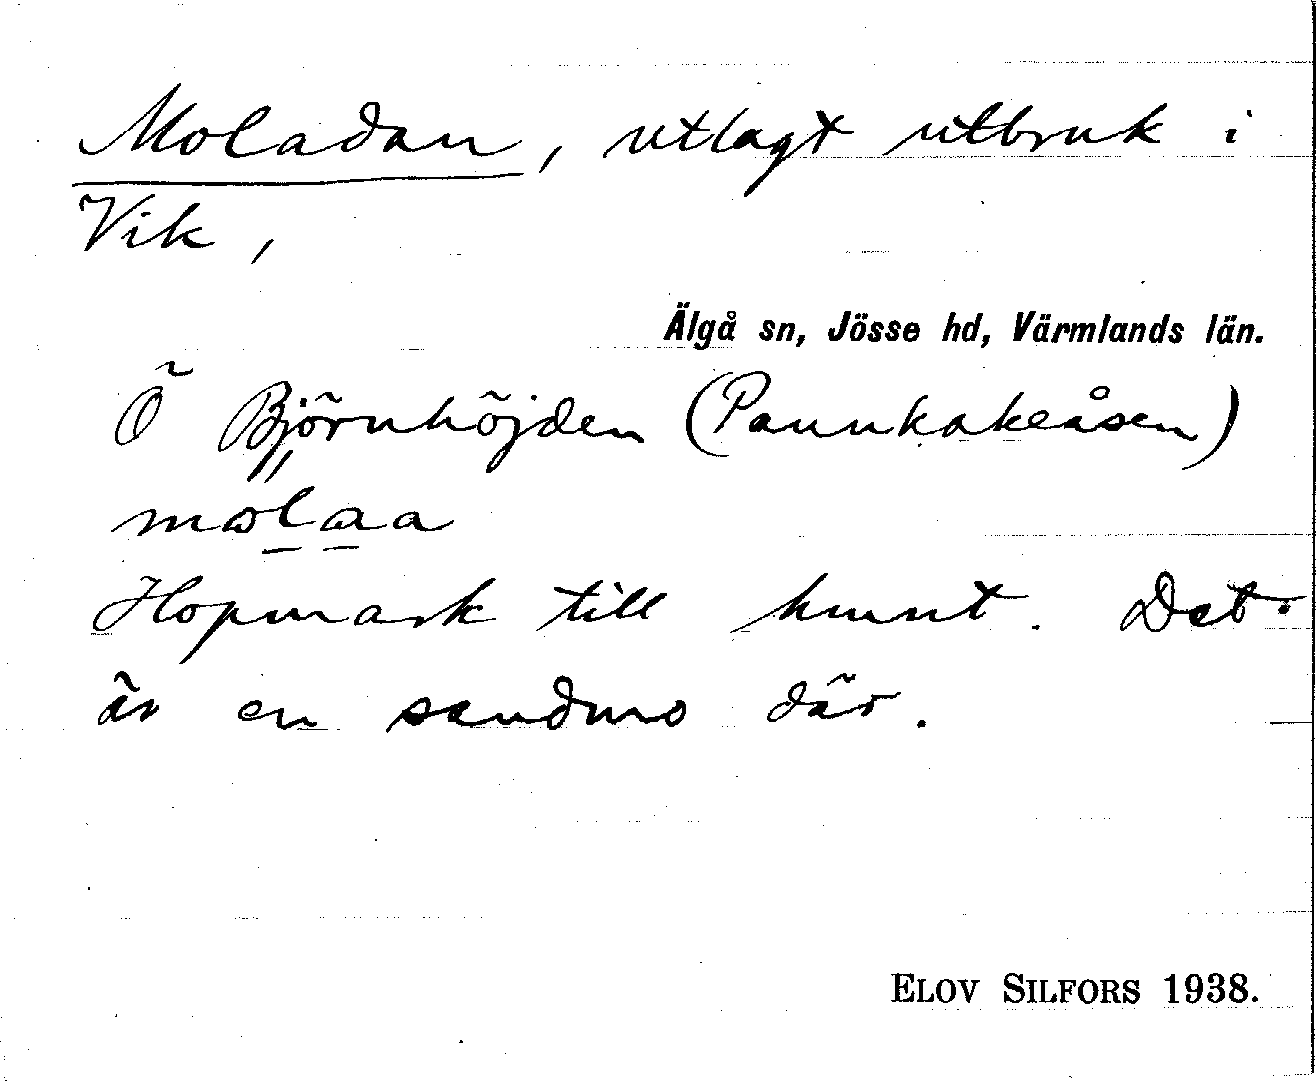 Moladan, utlagt utbruk i
Vik,
Älgå sn, Jösse hd, Värmlands län.
Ö Björnhöjden (Pannkakeåsen)
molaa
Hopmark till hmnt. Det
är en sandmo där.
ELOV SILFORS 1938.